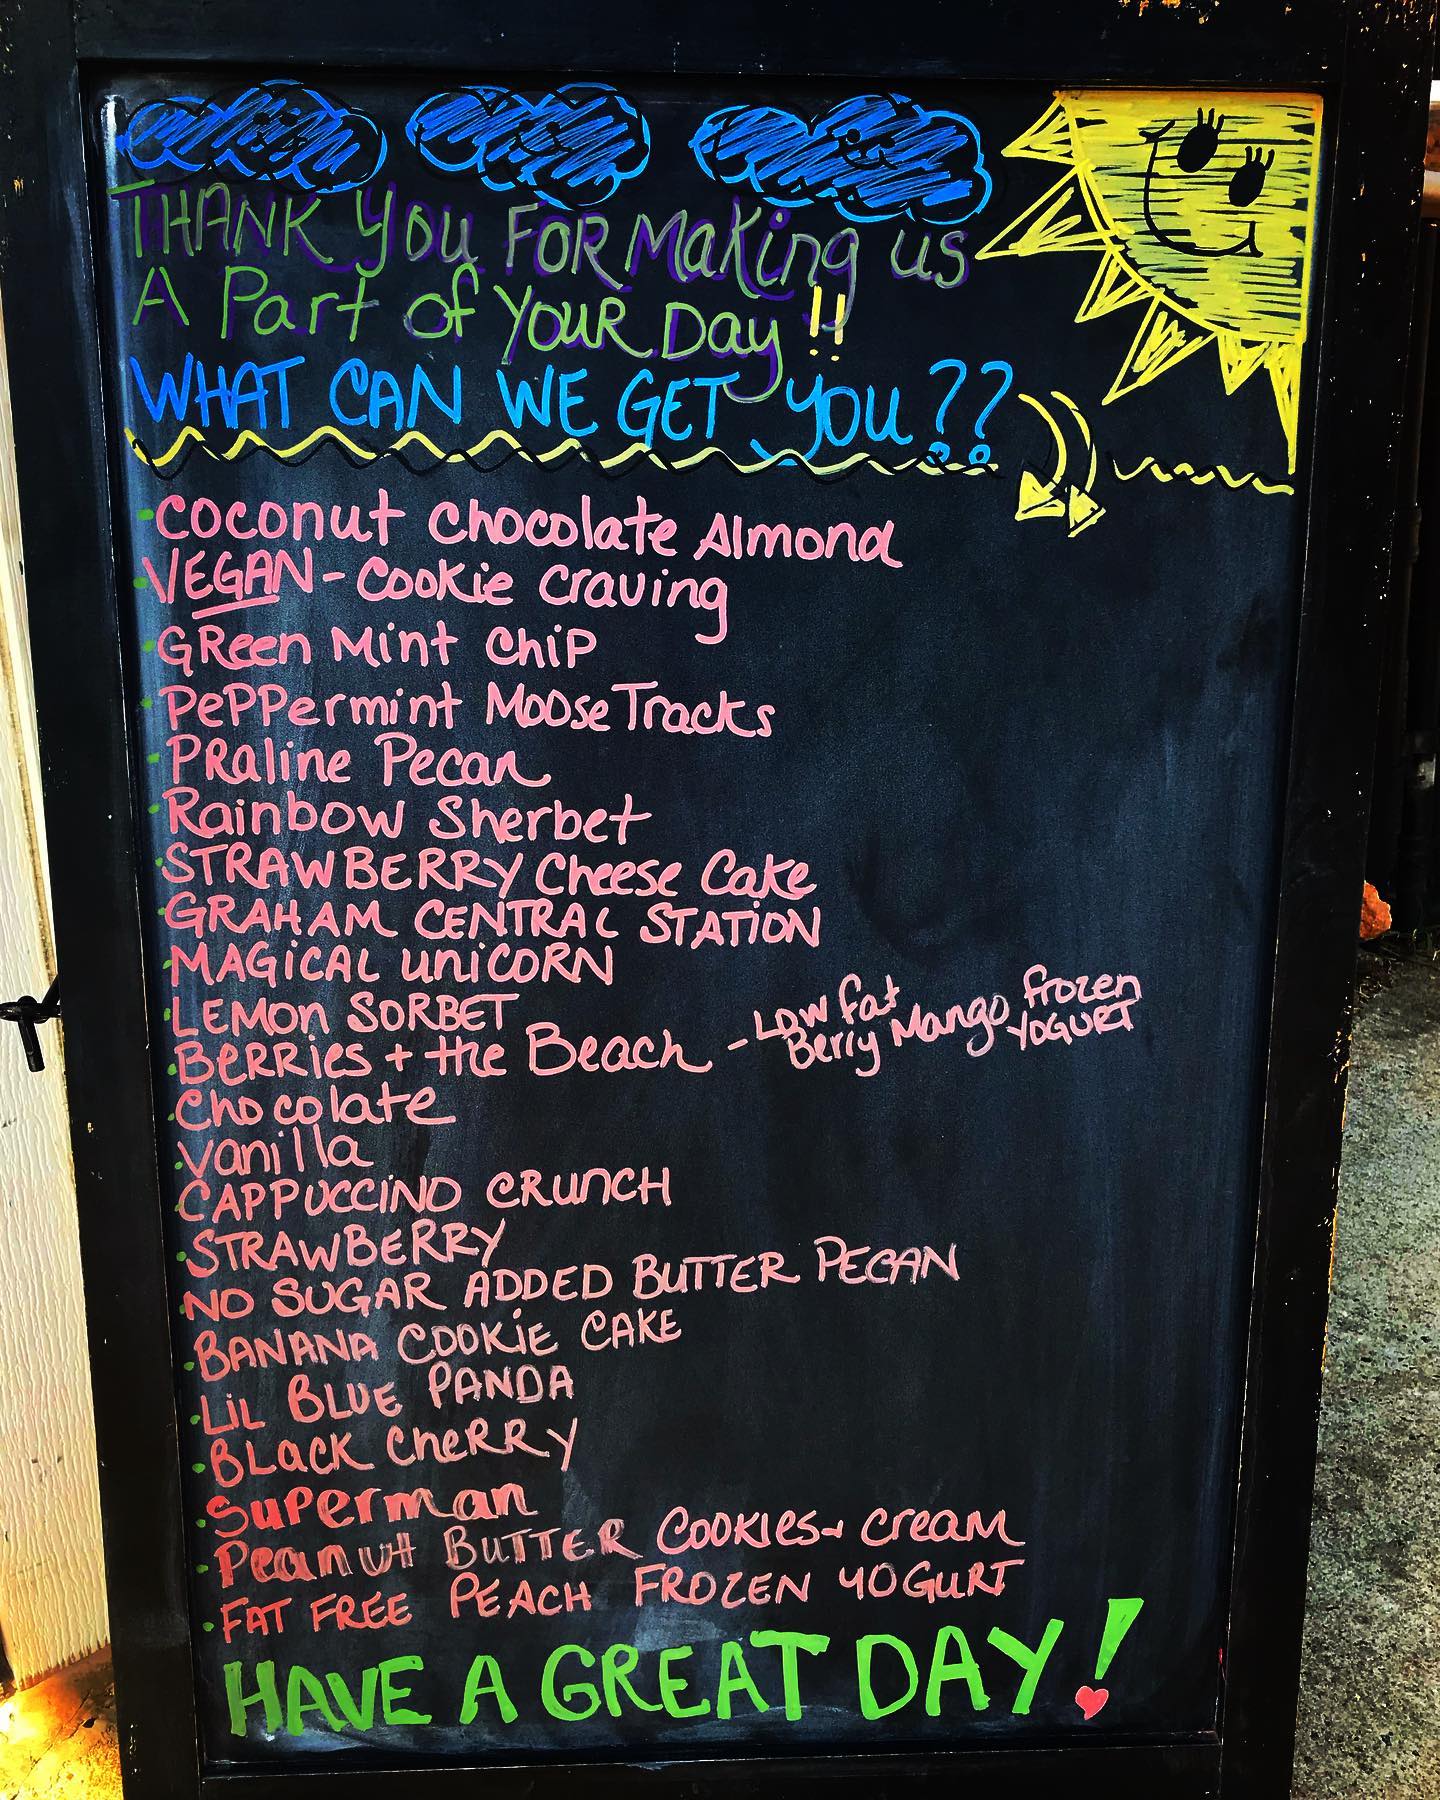 THANK YOU FOR Making us
A Part of YOUR Day!!
WHAT CAN WE GET YOU??
•Coconut Chocolate Almond
•VEGAN- Cookie Craving
•GReen Mint Chip
•PePPermint Moose Tracks
•PRaline Pecan
•Rainbow Sherbet
•STRAWBERRY Cheese Cake
•GRAHAM CENTRAL STATION
•MAGICAL UNICORN
•LEMON SORBET
•BERRIES + the Beach - Low fat Berry Mango frozen YOGURT
•Chocolate
•Vanilla
•CAPPUCCINO CRUNCH
•STRAWBERRY
•NO SUGAR ADDED BUTTER PECAN
•BANANA COOKIE CAKE
•LiL BLUE PANDA
•BLACK CHERRY
•SUPerman
•Peanut BUTTER COOKIES + CREAM
•FAT FREE PEACH FROZEN YOGURT
HAVE A GREAT DAY!